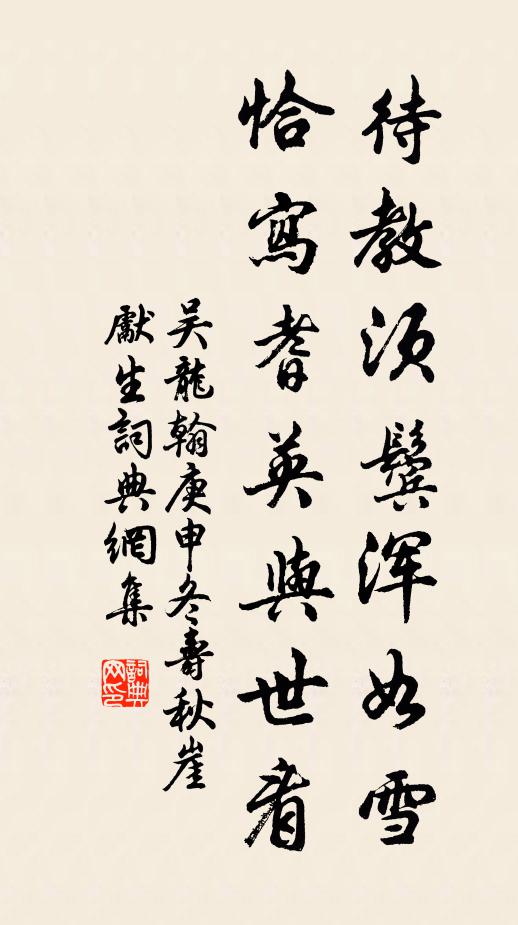 待教須鬢渾如雪
恰寫耆英與世看
吴龍翰庚申冬壽秋崖
獻生詞典網集
詞典网印